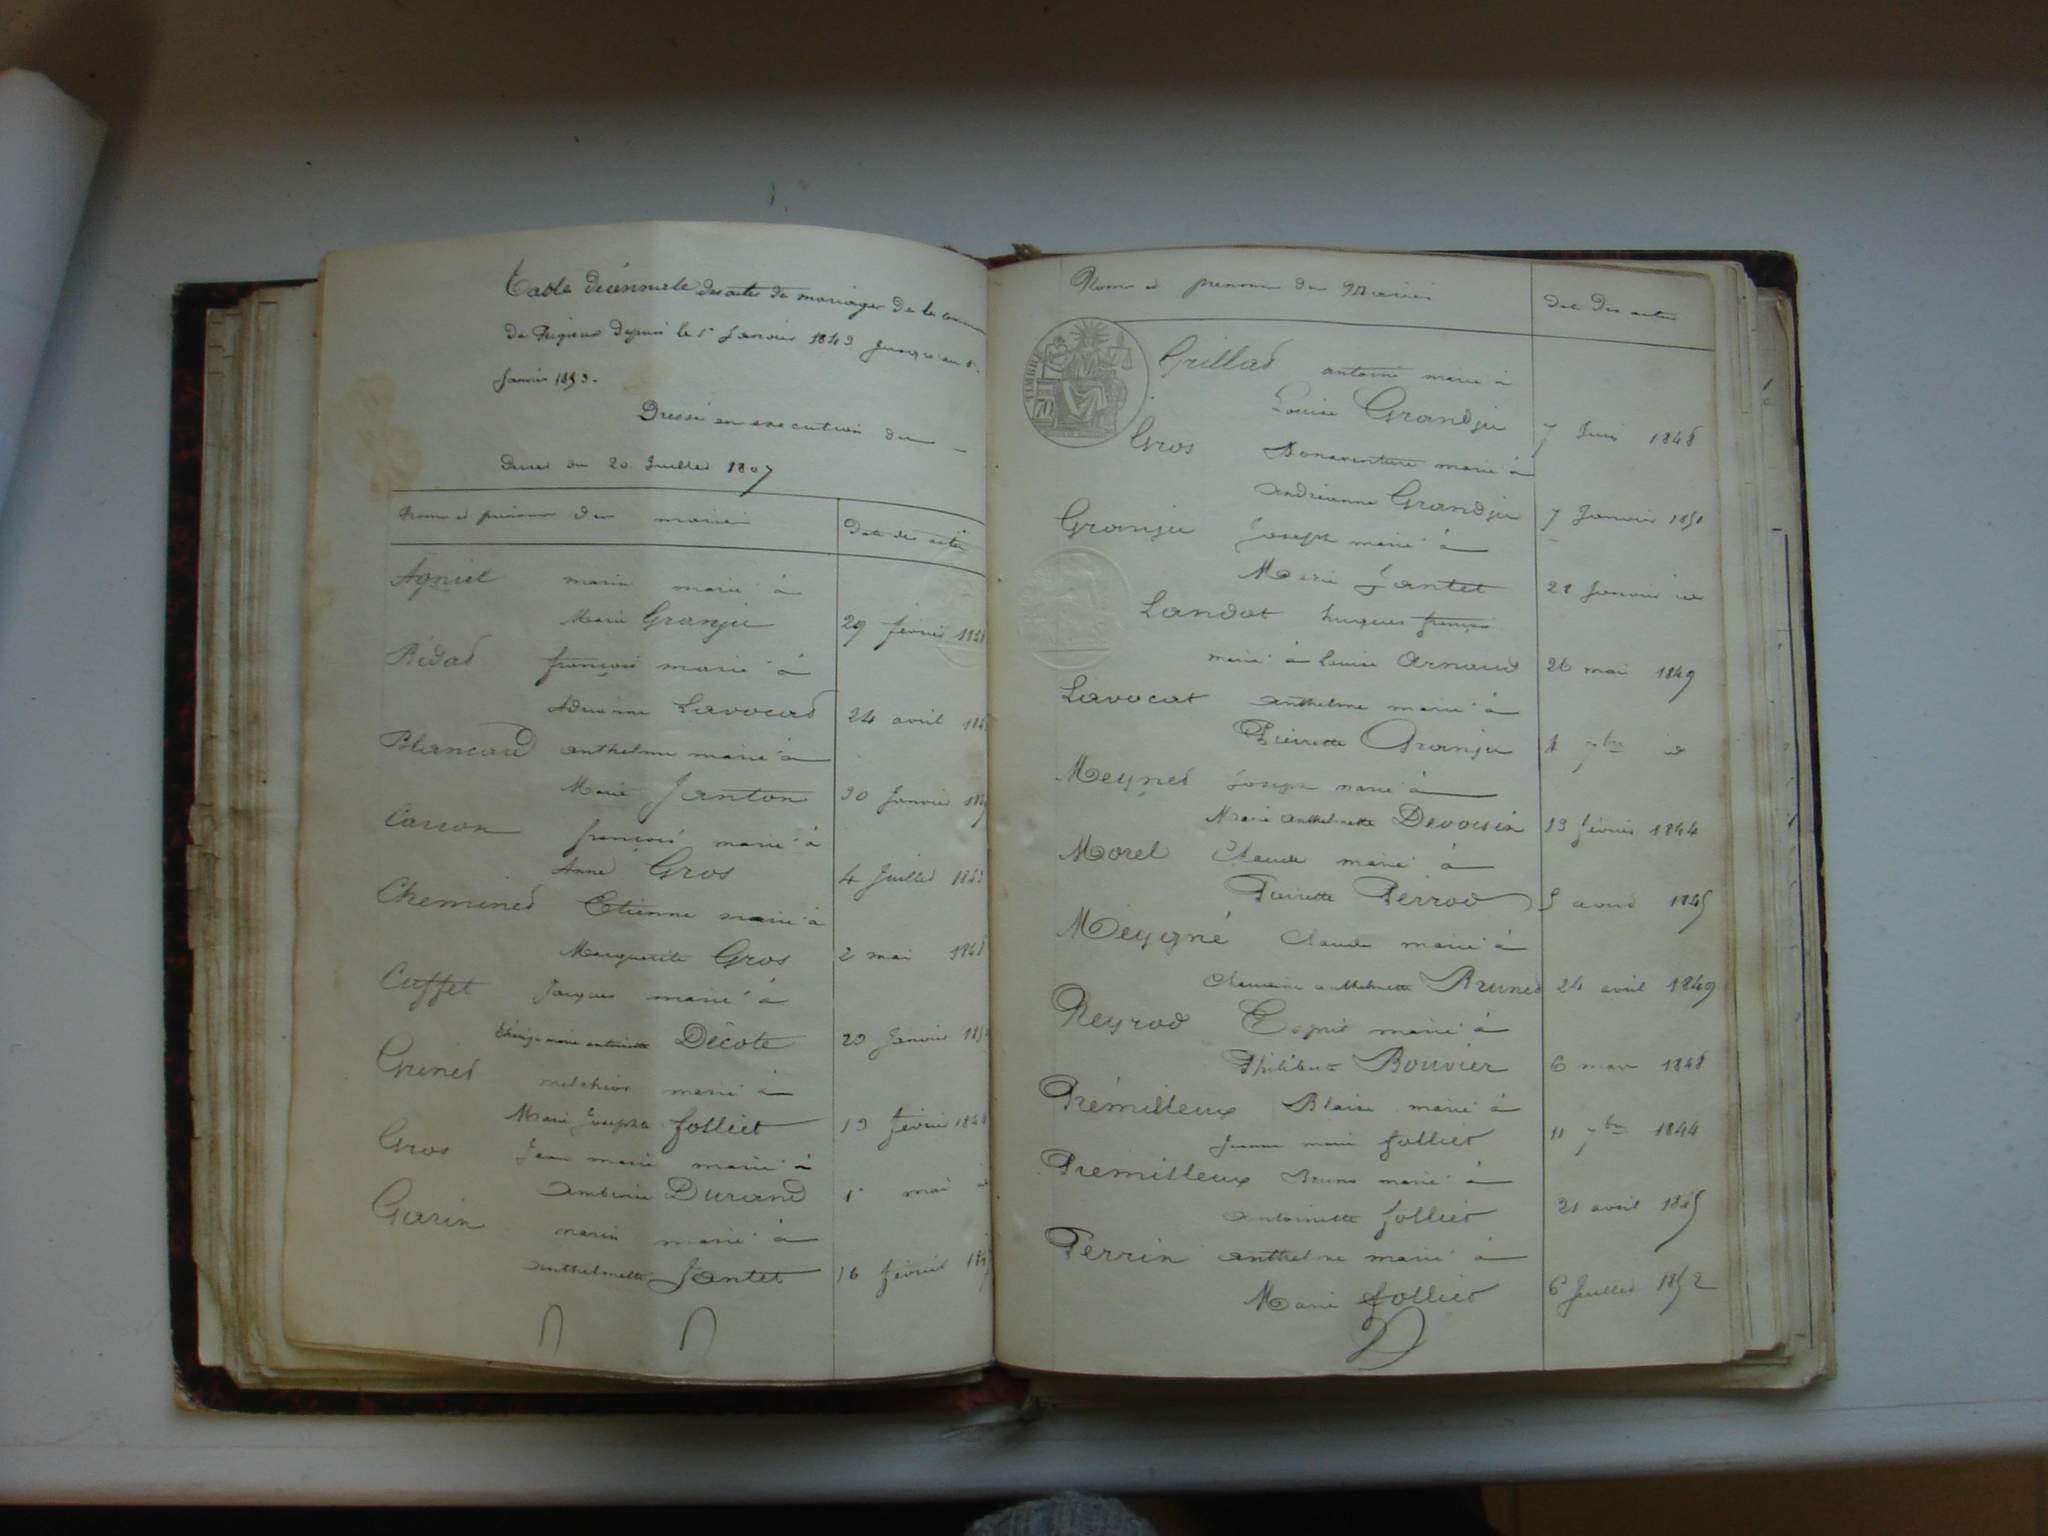 Table décennale des actes de mariages de la commune
de Prigieux depuis le 1er Janvier 1843 jusqu'au 1er
Janvier 1853.
Dressé en exécution du
décret du 20 Juillet 1807
Nom et prénoms des mariés
Date des actes
Agniel marin marié à
Marie Granju 29 février 1848
Bidad françois marié à
Adrienne Lavocad 24 avril
Blancard anthelme marié à
Marie Janton 30 Janvier
Carron françois marié à
Anne Gros 4 Juillet 1843
Chemined Etienne marié à
Marguerite Gros 2 mai 1848
Cuffet Jacques marié à
marie antoinette Décote 29 Janvier
Grined melchior marié à
Marie Josephte folliet 19 février 1844
Gros Jean marie marié à
Durand 1er mai
Gurin marin marié à
anthelmette Jantet 16 février
Nom et prénoms des Mariés
Date des actes
TIMBRE
70
Grillad antoine marié à
Louise Grandju 7 Juin 1848
Gros Bonaventure marié à
andréanne Grandju 7 Janvier 1851
Granju Joseph marié à
Marie Jantet 28 Janvier id
Landot hugues françois
marié à Louise Arnaud 26 mai 1849
Lavocat anthelme marié à
Pierrette Granju 7bre id
Meyned Joseph marié à
Marie anthelmette Devoisin 13 février 1844
Morel Claude marié à
Pierrette Perrod 5 avril 1845
Meygné Claude marié à
Claudine anthelmette Bruned 24 avril 1849
Peyrod Esprit marié à
Philiberte Bouvier 6 mars 1848
Prémilleux Blaise marié à
Jeanne marie follied 11 7bre 1844
Prémilleux Bruno marié à
antoinette follied 21 avril 1845
Perrin anthelme marié à
Marie follied 6 Juillet 1852